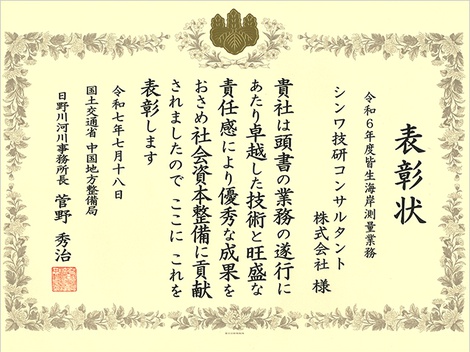 表彰状
令和6年度皆生海岸測量業務
シンワ技研コンサルタント
株式会社 様
貴社は頭書の業務の遂行に
あたり卓越した技術と旺盛な
責任感により優秀な成果を
おさめ社会資本整備に貢献
されましたので ここに これを
表彰します
令和七年七月十八日
国土交通省 中国地方整備局
日野川河川事務所長 菅野 秀治